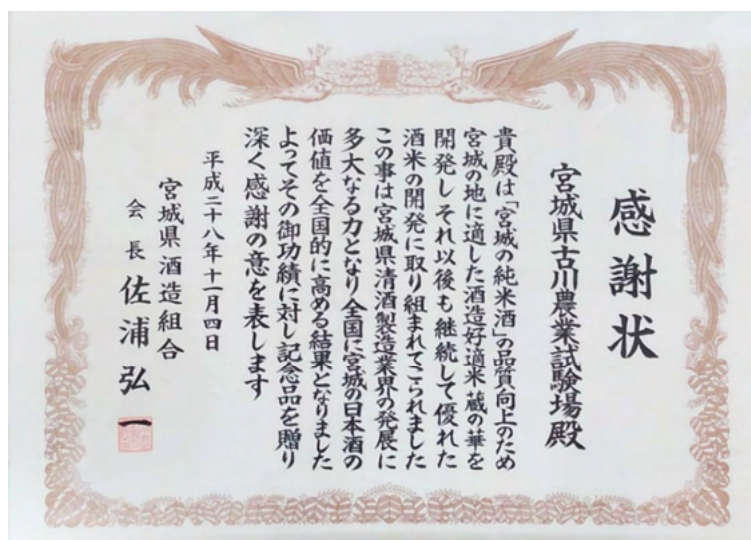 感謝状
宮城県古川農業試験場殿
貴殿は「宮城の純米酒」の品質向上のため
宮城の地に適した酒造好適米蔵の華を
開発しそれ以後も継続して優れた
酒米の開発に取り組まれてこられました
この事は宮城県清酒製造業界の発展に
多大なる力となり全国に宮城の日本酒の
価値を全国的に高める結果となりました
よってその御功績に対し記念品を贈り
深く感謝の意を表します
平成二十八年十一月四日
宮城県酒造組合
会長 佐浦弘一